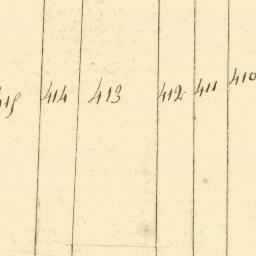 415 414 413 412 411 410